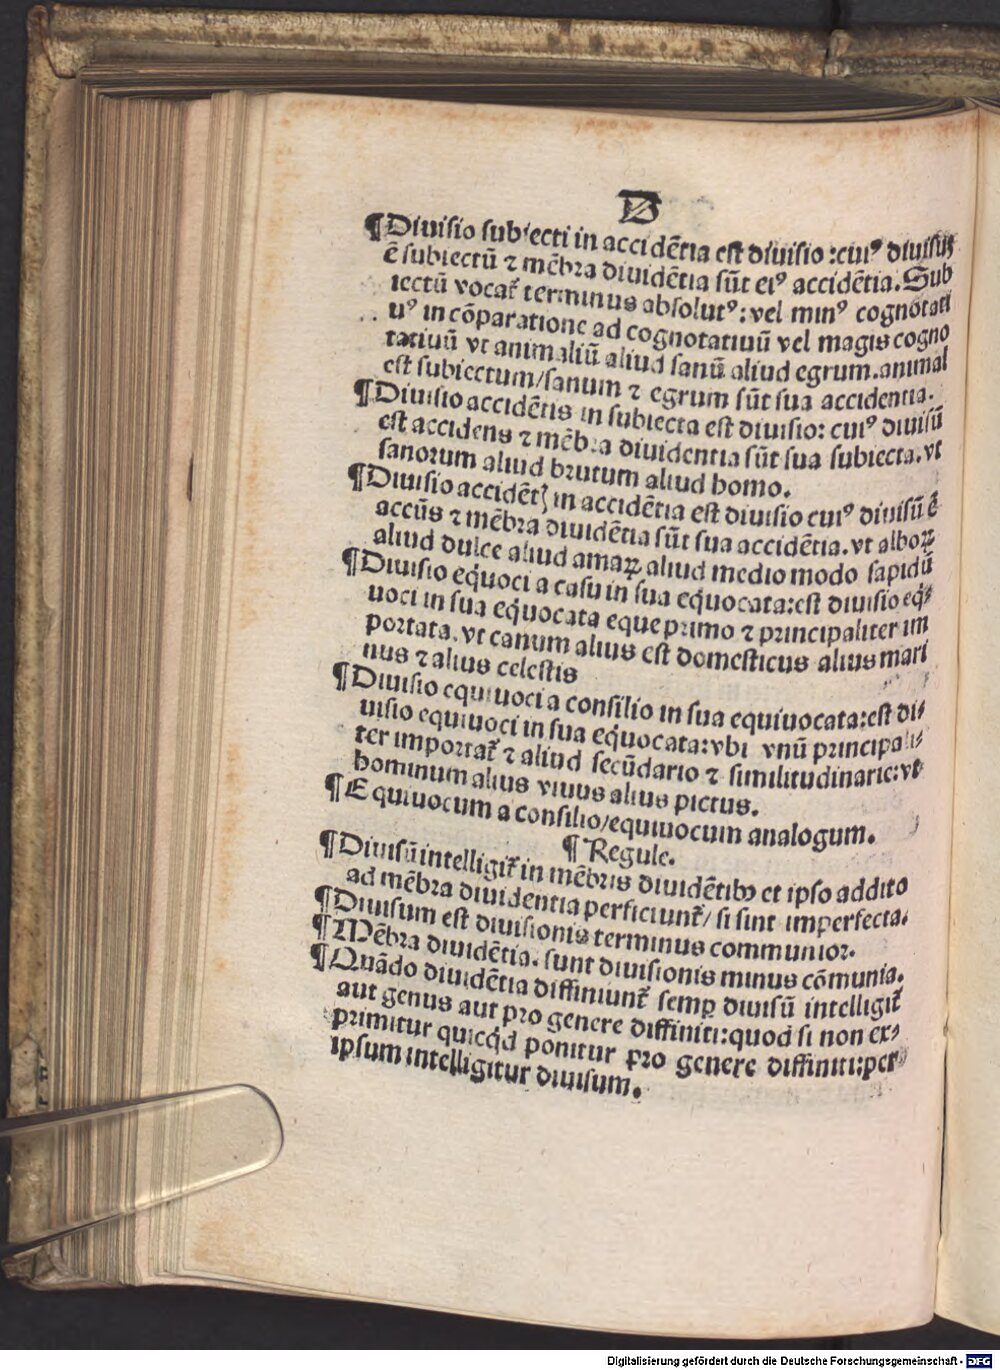 D
¶Diuisio subiecti in accidētia est diuisio :cuiꝰ diuisuʒ
ē subiectū ⁊ mēbra diuidētia sūt eiꝰ accidētia. Sub
iectū vocat̄ terminus absolutꝰ: vel minꝰ cognotati
uꝰ in cōparatione ad cognotatiuū vel magis cogno
tatiuū vt animaliū aliud sanū aliud egrum. animal
est subiectum/sanum ⁊ egrum sūt sua accidentia.
¶Diuisio accidētis in subiecta est diuisio: cuiꝰ diuisū
est accidens ⁊ mēbra diuidentia sūt sua subiecta. vt
sanorum aliud brutum aliud homo.
¶Diuisio accidētꝭ in accidētia est diuisio cuiꝰ diuisū ē
accūs ⁊ mēbra diuidētia sūt sua accidētia. vt alboꝝ
aliud dulce aliud amaꝝ aliud medio modo sapidū
¶Diuisio equoci a casu in sua equocata: est diuisio eq̄⸗
uoci in sua equocata eque primo ⁊ principaliter im
portata. vt canum alius est domesticus alius mari
nus ⁊ alius celestis
¶Diuisio equiuoci a consilio in sua equiuocata: est di⸗
uisio equiuoci in sua equocata: vbi vnū principali⸗
ter importat̄ ⁊ aliud secūdario ⁊ similitudinarie: vt
hominum alius viuus alius pictus.
¶Equiuocum a consilio/equiuocum analogum.
¶Regule.
¶Diuisū intelligit̄ in mēbris diuidētibꝫ et ipso addito
ad mēbra diuidentia perficiunt̄/ si sint imperfecta.
¶Diuisum est diuisionis terminus communior.
¶Mēbra diuidētia. sunt diuisionis minus cōmunia.
¶Quādo diuidētia diffiniunt̄ semꝑ diuisū intelligit̄
aut genus aut pro genere diffiniti: quod si non ex⸗
primitur quicq̄d ponitur pro genere diffiniti: per
ipsum intelligitur diuisum.
Digitalisierung gefördert durch die Deutsche Forschungsgemeinschaft - DFG